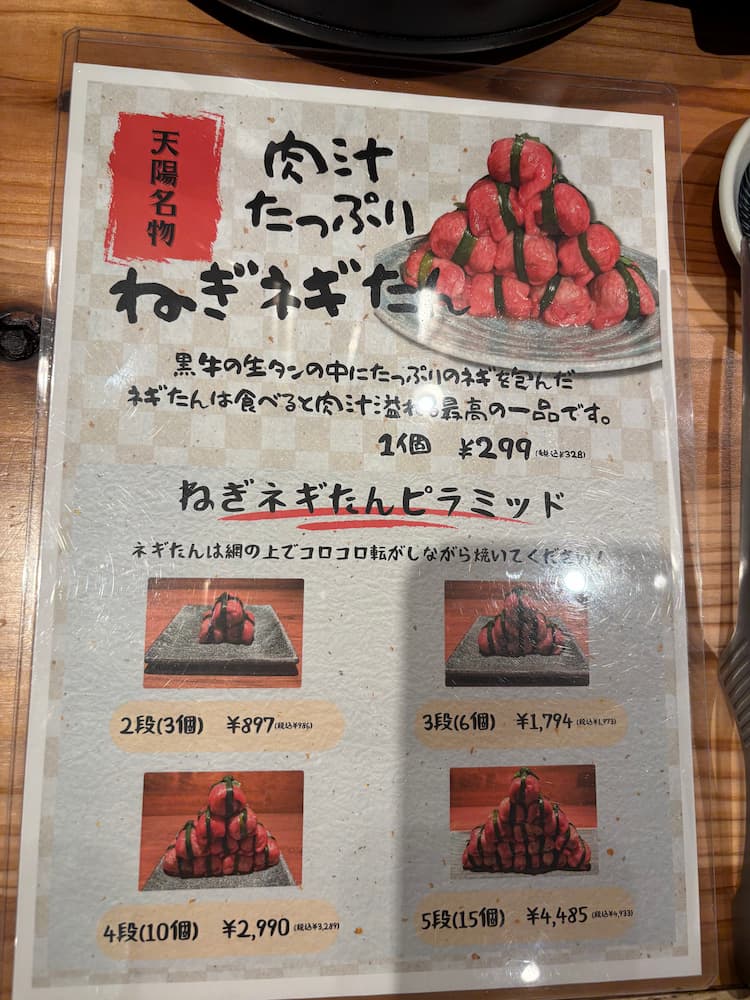 天陽名物
肉汁
たっぷり
ねぎネギたん
黒牛の生タンの中にたっぷりのネギを包んだ
ネギたんは食べると肉汁溢れる最高の一品です。
1個 ¥299(税込¥328)
ねぎネギたんピラミッド
ネギたんは網の上でコロコロ転がしながら焼いてください!
2段(3個) ¥897(税込¥986)
3段(6個) ¥1,794(税込¥1,973)
4段(10個) ¥2,990(税込¥3,289)
5段(15個) ¥4,485(税込¥4,933)